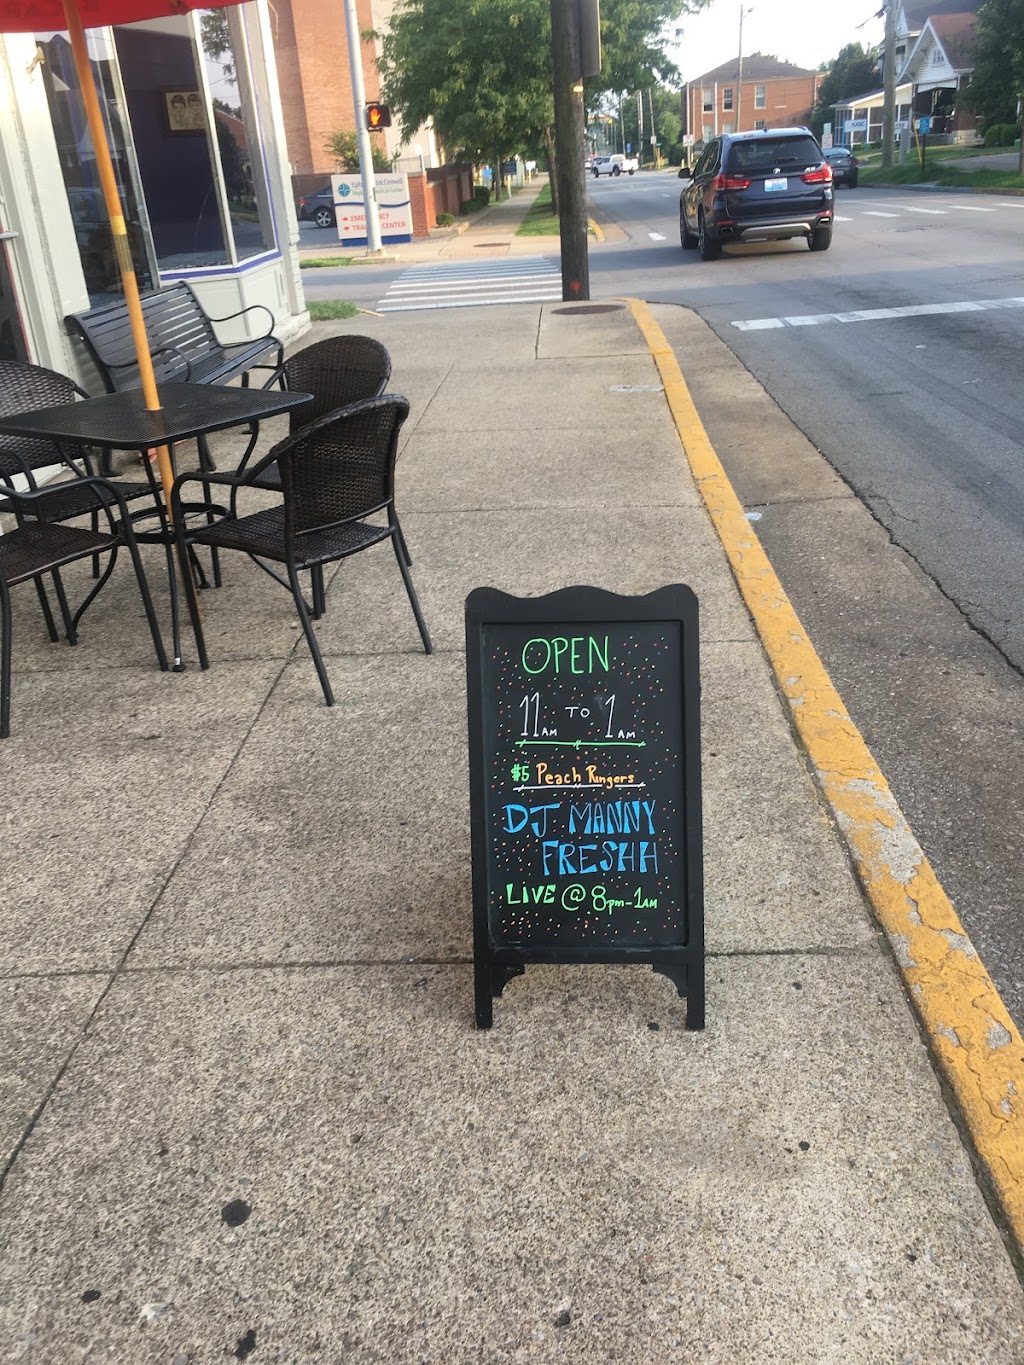 OPEN
11AM TO 1AM
$5 Peach Ringers
DJ MANNY
FRESHH
LIVE @ 8pm-1AM
McDowell
EMERGENCY
CENTER